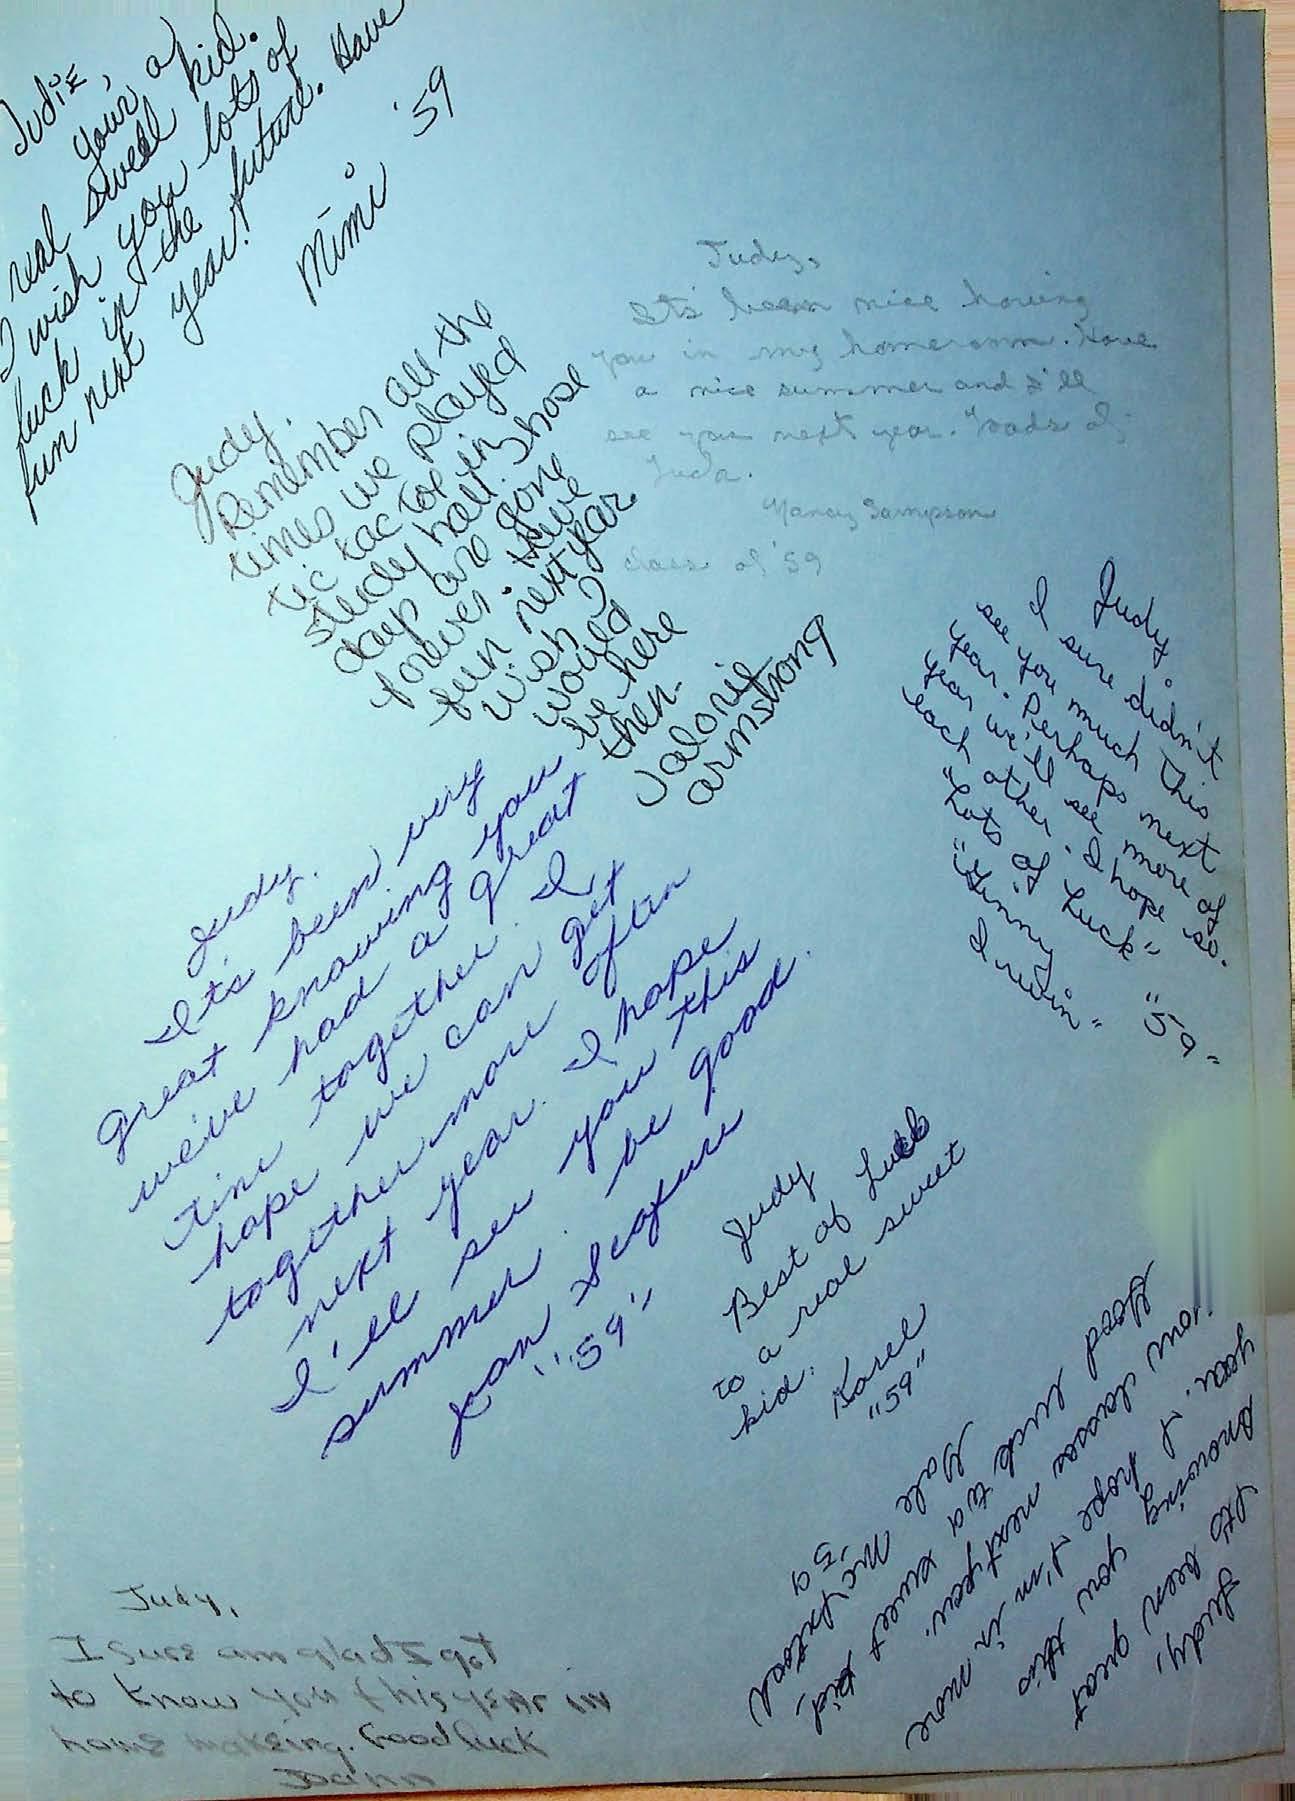 Judie,
your a
real sweell kid.
I wish you lots of
luck in the future. Have
fun next year!
Mimi '59
Judy,
Its' been nice having
you in my homeroom. Have
a nice summer and I'll
see you next year. Loads of
Luck.
Nancy Sampson
class of '59
Judy.
Remember all the
times we played
tic tac toe in
study hall. Those
days are gone
forever. Have
fun next year.
Wish I
would
be here
then.
Valorie
Armstrong
Judy,
I sure didn't
see you much this
year. Perhaps next
year we'll see more of
each other. I hope so.
"Lots of Luck"
"Ginny
Irwin" "59"
Judy.
It's been very
great knowing you
we've had a great
time together. I
hope we can get
together more often
next year. I hope
I'll see you this
summer. be good.
Joan
"59"
Judy
Best of Luck
to a real sweet
kid.
Karel
"59"
Judy,
Its been great
knowing you this
year. I hope I'm in more
your classes next year.
Good luck to a sweet kid,
Gale
'59
Judy,
I sure am glad I got
to know you this year in
home makeing. Good luck
Joann